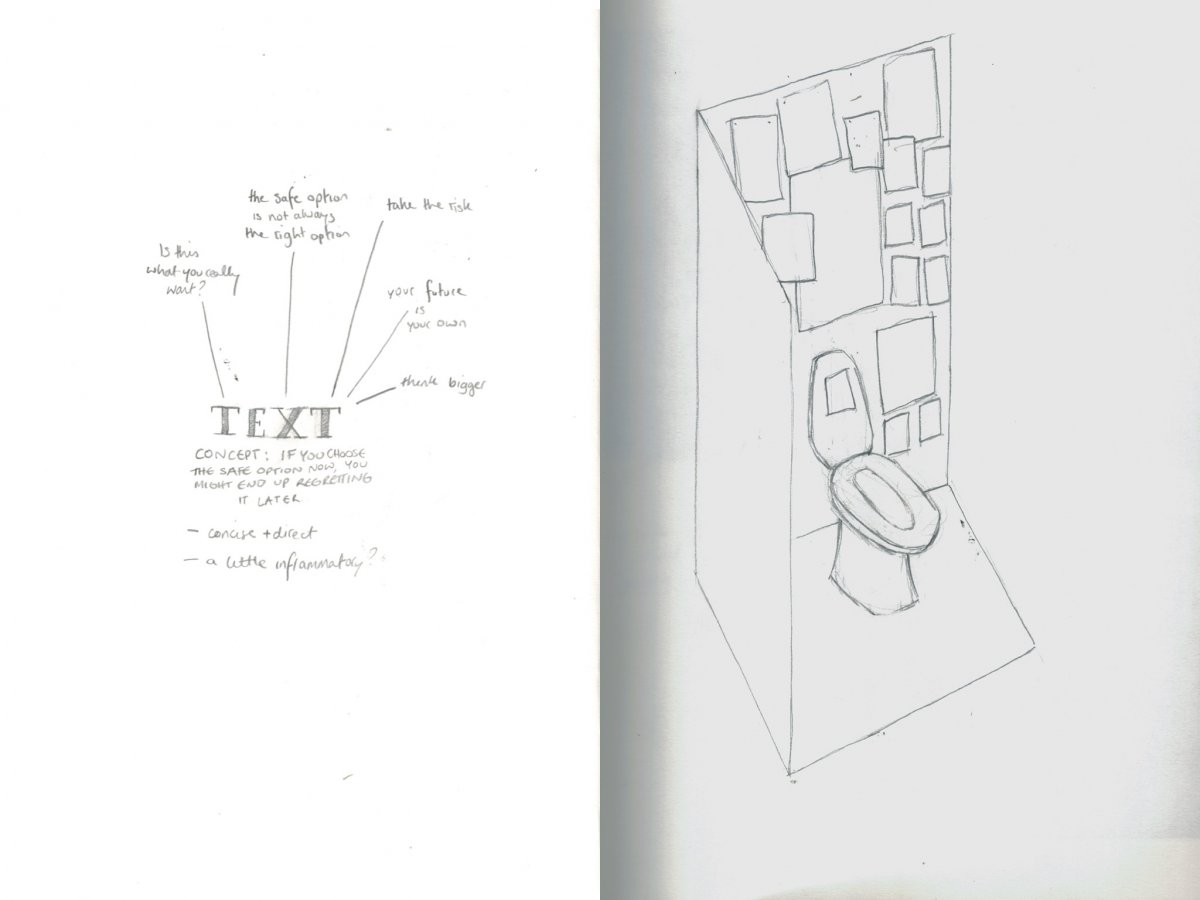 the safe option
is not always
the right option
take the risk
Is this
what you really
want?
your future
is
your own
think bigger
TEXT
CONCEPT: IF YOU CHOOSE
THE SAFE OPTION NOW, YOU
MIGHT END UP REGRETTING
IT LATER
- concise + direct
- a little inflammatory?